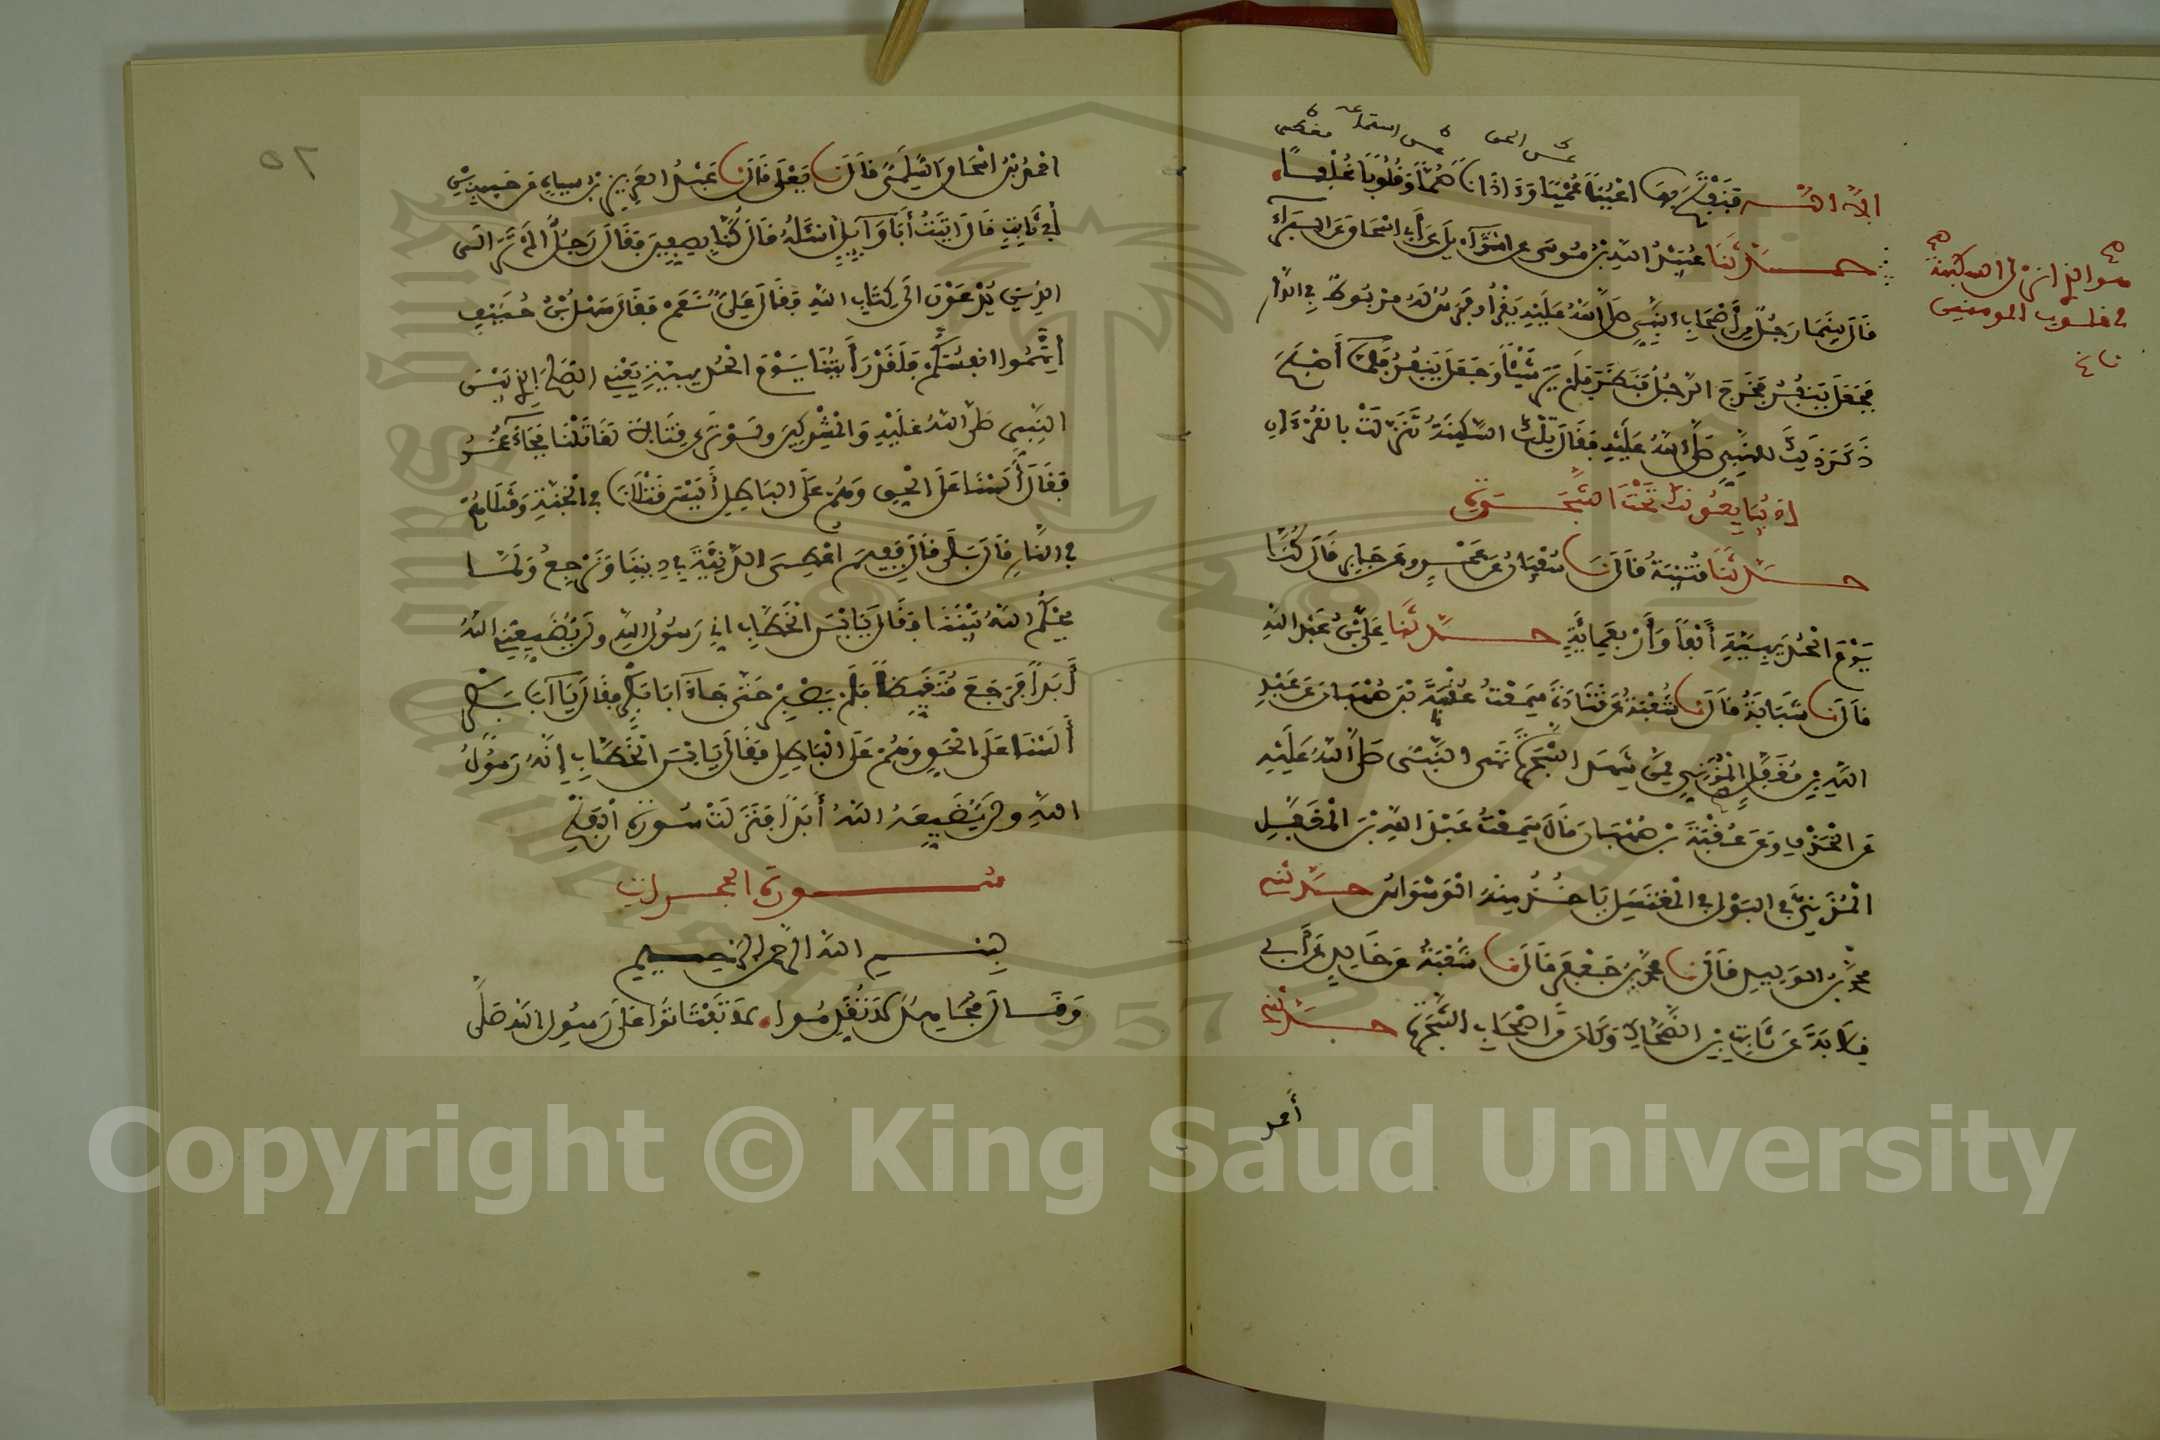 عن الحق عن استماع مغطى
الا الله فيفتح بها اعينا عميا وءاذانا صما وقلوبا غلفا
حدثنا عبيد الله بن موسى عن اسرآءيل عن أبي اسحاق عن البرآء
قال بينما رجل من أصحاب النبي صلى الله عليه يقرأ وفرس له مربوط في الدار
فجعل ينفر فخرج الرجل فنظر فلم ير شيئا وجعل ينفر فلما أصبح
ذكر ذلك للنبي صلى الله عليه فقال تلك السكينة تنزلت بالقرءان
اذ يبايعونك تحت الشجرة
حدثنا قتيبة قال نا سفيان عن عمرو عن جابر قال كنا
يوم الحديبية ألفا وأربعمائة حدثنا علي بن عبد الله
قال نا شبابة قال نا شعبة عن قتادة سمعت عقبة بن صهبان عن عبد
الله بن مغفل المزني ممن شهد الشجرة نهى النبي صلى الله عليه
عن الخذف وعن عقبة بن صهبان قال سمعت عبد الله بن المغفل
المزني في البول في المغتسل ياخذ منه الوسواس حدثني
محمد بن الوليد قال نا محمد بن جعفر قال نا شعبة عن خالد عن أبي
قلابة عن ثابت بن الضحاك وكان من أصحاب الشجرة حدثني
أحمد
هو الذي انزل السكينة
في قلوب المومنين
٥٢
احمد بن اسحاق السلمي قال نا يعلى قال نا عبد العزيز بن سياه عن حبيب بن
أبي ثابت قال اتيت أبا وآيل اسئله فقال كنا بصفين فقال رجل الم تر الى
الذين يدعون الى كتاب الله فقال علي نعم فقال سهل بن حنيف
اتهموا انفسكم فلقد رأيتنا يوم الحديبية يعني الصلح الذي بين
النبي صلى الله عليه والمشركين ولو نرى قتالا لقاتلنا فجاء عمر
فقال ألسنا على الحق وهم على الباطل أليس قتلانا في الجنة وقتلاهم
في النار قال بلى قال ففيم اعطي الدنية في ديننا ونرجع ولما
يحكم الله بيننا فقال يا بن الخطاب اني رسول الله ولن يضيعني الله
أبدا فرجع متغيظا فلم يصبر حتى جاء ابا بكر فقال يا ابا بكر
ألسنا على الحق وهم على الباطل فقال يا بن الخطاب إنه رسول
الله ولن يضيعه الله أبدا فنزلت سورة الفتح
سورة الحجرات
بسم الله الرحمن الرحيم
وقال مجاهد لا تقدموا لا تفتاتوا على رسول الله صلى
Copyright © King Saud University
1957